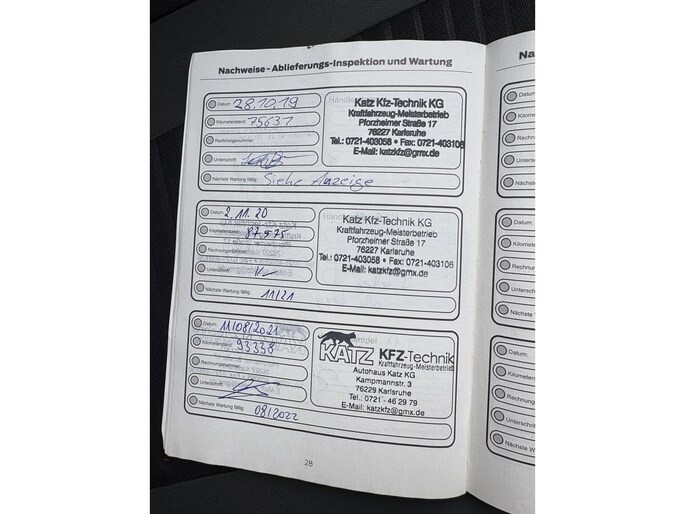 Nachweise - Ablieferungs-Inspektion und Wartung
Datum: 28.10.19
Kilometerstand: 75637
Rechnungsnummer:
Unterschrift:
Nächste Wartung fällig: Siehe Anzeige
Katz Kfz-Technik KG
Kraftfahrzeug-Meisterbetrieb
Pforzheimer Straße 17
76227 Karlsruhe
Tel.: 0721-403058 • Fax: 0721-403106
E-Mail: katzkfz@gmx.de
Datum: 2.11.20
Kilometerstand: 87.575
Rechnungsnummer:
Unterschrift:
Nächste Wartung fällig: 11/21
Katz Kfz-Technik KG
Kraftfahrzeug-Meisterbetrieb
Pforzheimer Straße 17
76227 Karlsruhe
Tel.: 0721-403058 • Fax: 0721-403106
E-Mail: katzkfz@gmx.de
Datum: 11/08/2021
Kilometerstand: 93338
Rechnungsnummer:
Unterschrift:
Nächste Wartung fällig: 08/2022
KATZ KFZ-Technik
Kraftfahrzeug-Meisterbetrieb
Autohaus Katz KG
Kampmannstr. 3
76229 Karlsruhe
Tel.: 0721 - 46 29 79
E-Mail: katzkfz@gmx.de
28
Na
Datum:
Kilometers
Rechnung
Unterschri
Nächste W
Datum:
Kilometer
Rechnun
Untersch
Nächste
Datum:
Kilometers
Rechnun
Unterschrif
Nächste W